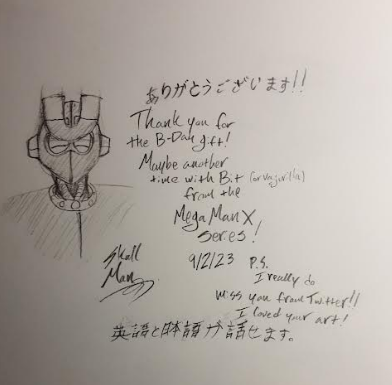 ありがとうございます!!
Thank you for
the B-Day gift!
Maybe another
time with Bit (or Vajurilla)
from the
Mega Man X
series!
Skull
Man
9/2/23
P.S.
I really do
miss you from Twitter!!
I loved your art!
英語と日本語が話せます。